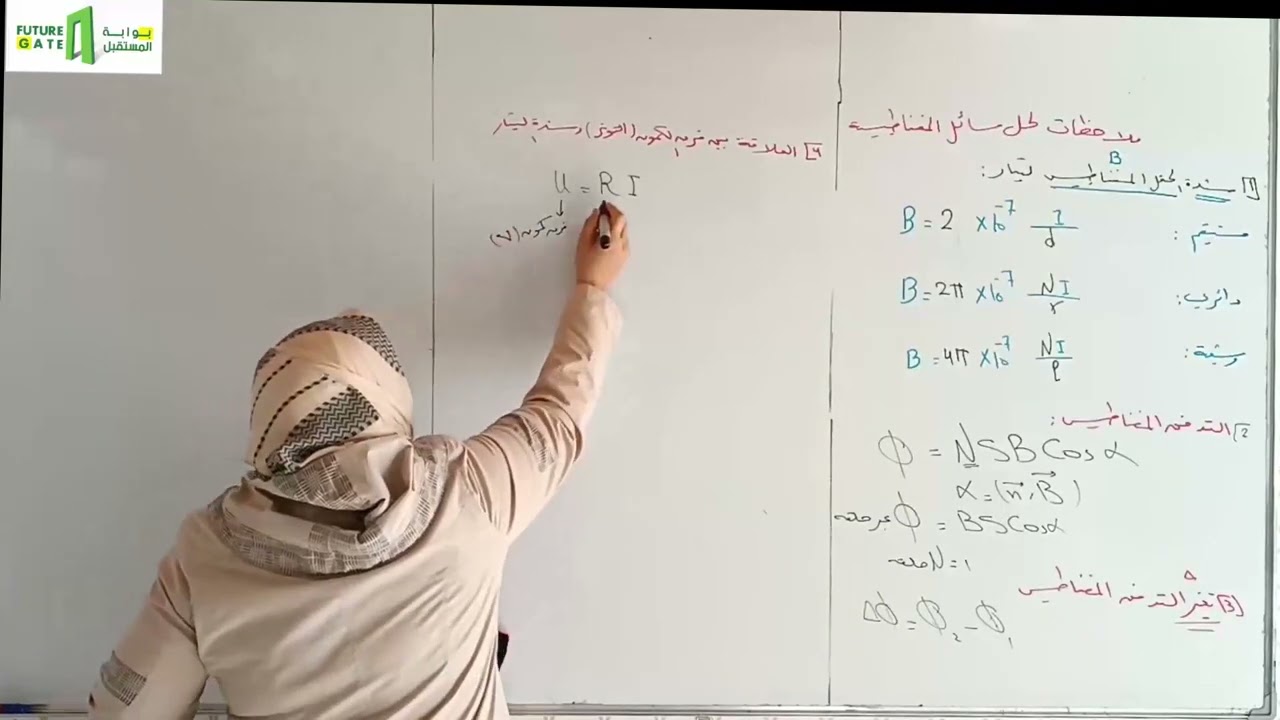 FUTURE GATE
بوابة المستقبل
ملاحظات لحل مسائل المغناطيسية
1] شدة الحقل المغناطيسي لتيار:
B
مستقيم: B = 2 × 10⁻⁷ I/d
دائري: B = 2π × 10⁻⁷ NI/r
وشيعة: B = 4π × 10⁻⁷ NI/ℓ
2] التدفق المغناطيسي:
Φ = NSB Cos α
α = (n⃗, B⃗)
Φ = BS Cos α
N = 1
Δ
3] تغير التدفق المغناطيسي
ΔΦ = Φ₂ - Φ₁
4] العلاقة بين فرق الكمون (التوتر) وشدة التيار
U = R I
↓
فرق كمون (V)